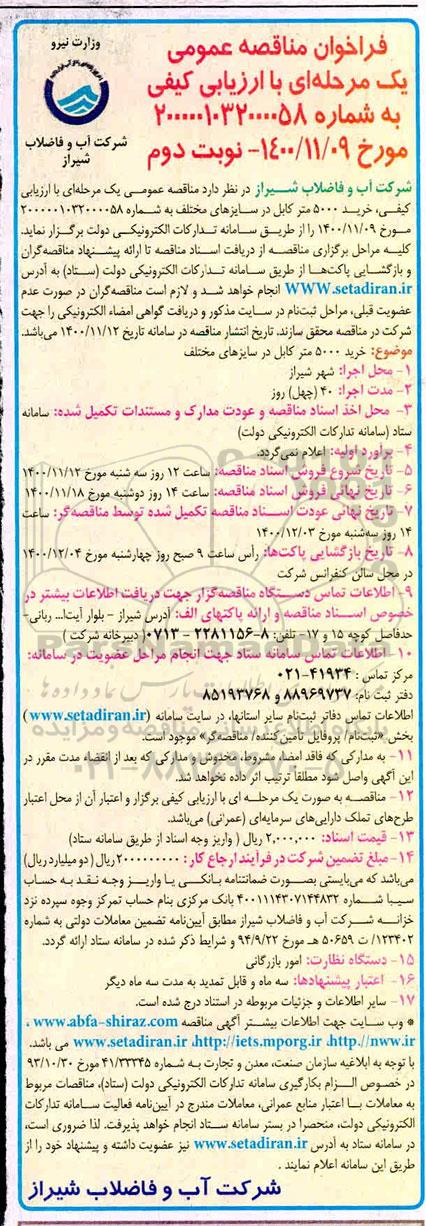 وزارت نیرو
شرکت آب و فاضلاب
شیراز
فراخوان مناقصه عمومی
یک مرحله‌ای با ارزیابی کیفی
به شماره ۲۰۰۰۰۰۱۰۳۲۰۰۰۰۵۸
مورخ ۱۴۰۰/۱۱/۰۹- نوبت دوم
شرکت آب و فاضلاب شیراز در نظر دارد مناقصه عمومی یک مرحله‌ای با ارزیابی
کیفی، خرید ۵۰۰۰ متر کابل در سایزهای مختلف به شماره ۲۰۰۰۰۰۱۰۳۲۰۰۰۰۵۸
مورخ ۱۴۰۰/۱۱/۰۹ را از طریق سامانه تدارکات الکترونیکی دولت برگزار نماید.
کلیه مراحل برگزاری مناقصه از دریافت اسناد مناقصه تا ارائه پیشنهاد مناقصه‌گران
و بازگشایی پاکت‌ها از طریق سامانه تدارکات الکترونیکی دولت (ستاد) به آدرس
WWW.setadiran.ir انجام خواهد شد و لازم است مناقصه‌گران در صورت عدم
عضویت قبلی، مراحل ثبت‌نام در سایت مذکور و دریافت گواهی امضاء الکترونیکی را جهت
شرکت در مناقصه محقق سازند. تاریخ انتشار مناقصه در سامانه تاریخ ۱۴۰۰/۱۱/۱۲ می‌باشد.
موضوع: خرید ۵۰۰۰ متر کابل در سایزهای مختلف
۱- محل اجرا: شهر شیراز
۲- مدت اجرا: ۴۰ (چهل) روز
۳- محل اخذ اسناد مناقصه و عودت مدارک و مستندات تکمیل شده: سامانه
ستاد (سامانه تدارکات الکترونیکی دولت)
۴- برآورد اولیه: اعلام نمی‌گردد.
۵- تاریخ شروع فروش اسناد مناقصه: ساعت ۱۲ روز سه شنبه مورخ ۱۴۰۰/۱۱/۱۲
۶- تاریخ نهائی فروش اسناد مناقصه: ساعت ۱۴ روز دوشنبه مورخ ۱۴۰۰/۱۱/۱۸
۷- تاریخ نهائی عودت اسناد مناقصه تکمیل شده توسط مناقصه‌گر: ساعت
۱۴ روز سه‌شنبه مورخ ۱۴۰۰/۱۲/۰۳
۸- تاریخ بازگشایی پاکت‌ها: رأس ساعت ۹ صبح روز چهارشنبه مورخ ۱۴۰۰/۱۲/۰۴
در محل سالن کنفرانس شرکت
۹- اطلاعات تماس دستگاه مناقصه‌گزار جهت دریافت اطلاعات بیشتر در
خصوص اسناد مناقصه و ارائه پاکتهای الف: آدرس شیراز - بلوار آیت‌ا... ربانی-
حدفاصل کوچه ۱۵ و ۱۷- تلفن: ۸-۲۲۸۱۱۵۶ - ۰۷۱۳ ( دبیرخانه شرکت )
۱۰- اطلاعات تماس سامانه ستاد جهت انجام مراحل عضویت در سامانه:
مرکز تماس : ۴۱۹۳۴-۰۲۱
دفتر ثبت نام: ۸۸۹۶۹۷۳۷ و ۸۵۱۹۳۷۶۸
اطلاعات تماس دفاتر ثبت‌نام سایر استانها، در سایت سامانه (www.setadiran.ir)
بخش «ثبت‌نام/ پروفایل تأمین‌کننده/ مناقصه‌گر» موجود است.
۱۱- به مدارکی که فاقد امضاء مشروط، مخدوش و مدارکی که بعد از انقضاء مدت مقرر در
این آگهی واصل شود مطلقاً ترتیب اثر داده نخواهد شد.
۱۲- مناقصه به صورت یک مرحله ای با ارزیابی کیفی برگزار و اعتبار آن از محل اعتبار
طرح‌های تملک دارایی‌های سرمایه‌ای (عمرانی) می‌باشد.
۱۳- قیمت اسناد: ۲,۰۰۰,۰۰۰ ریال ( واریز وجه اسناد از طریق سامانه ستاد)
۱۴- مبلغ تضمین شرکت در فرآیند ارجاع کار: ۲۰۰۰۰۰۰۰۰۰ ریال ( دو میلیارد ریال)
می‌باشد که می‌بایستی بصورت ضمانتنامه بانکی یا واریز وجه نقد به حساب
سیبا شماره ۴۰۰۱۱۱۴۳۰۷۱۴۴۸۳۲ بانک مرکزی بنام حساب تمرکز وجوه سپرده نزد
خزانه شرکت آب و فاضلاب شیراز مطابق آیین‌نامه تضمین معاملات دولتی به شماره
۱۲۳۴۰۲/ ت ۵۰۶۵۹ هـ مورخ ۹۴/۹/۲۲ و شرایط ذکر شده در سامانه ستاد ارائه گردد.
۱۵- دستگاه نظارت: امور بازرگانی
۱۶- اعتبار پیشنهادها: سه ماه و قابل تمدید به مدت سه ماه دیگر
۱۷- سایر اطلاعات و جزئیات مربوطه در اسناد درج شده است.
* وب سایت جهت اطلاعات بیشتر آگهی مناقصه www.abfa-shiraz.com ،
http://nww.ir، http://iets.mporg.ir، www.setadiran.ir می باشد.
با توجه به ابلاغیه سازمان صنعت، معدن و تجارت به شماره ۴۱/۳۳۳۴۵ مورخ ۹۳/۱۰/۳۰
در خصوص الزام بکارگیری سامانه تدارکات الکترونیکی دولت (ستاد)، مناقصات مربوط
به معاملات با اعتبار منابع عمرانی، معاملات مندرج در آیین‌نامه فعالیت سامانه تدارکات
الکترونیکی دولت، منحصرا در بستر سامانه ستاد انجام خواهد پذیرفت. لذا ضروری است،
در سامانه ستاد به آدرس www.setadiran.ir نیز عضویت داشته و پیشنهاد خود را از
طریق این سامانه اعلام نمایند .
شرکت آب و فاضلاب شیراز